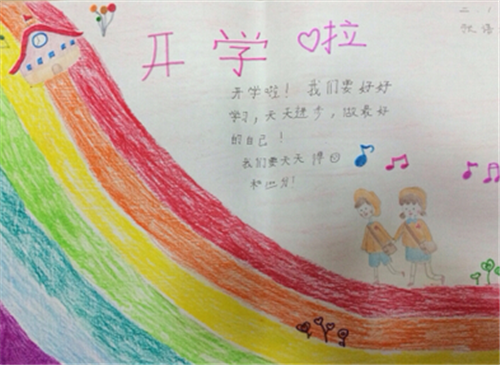 开学啦
开学啦！我们要好好
学习，天天进步，做最好
的自己！
我们要天天得☺